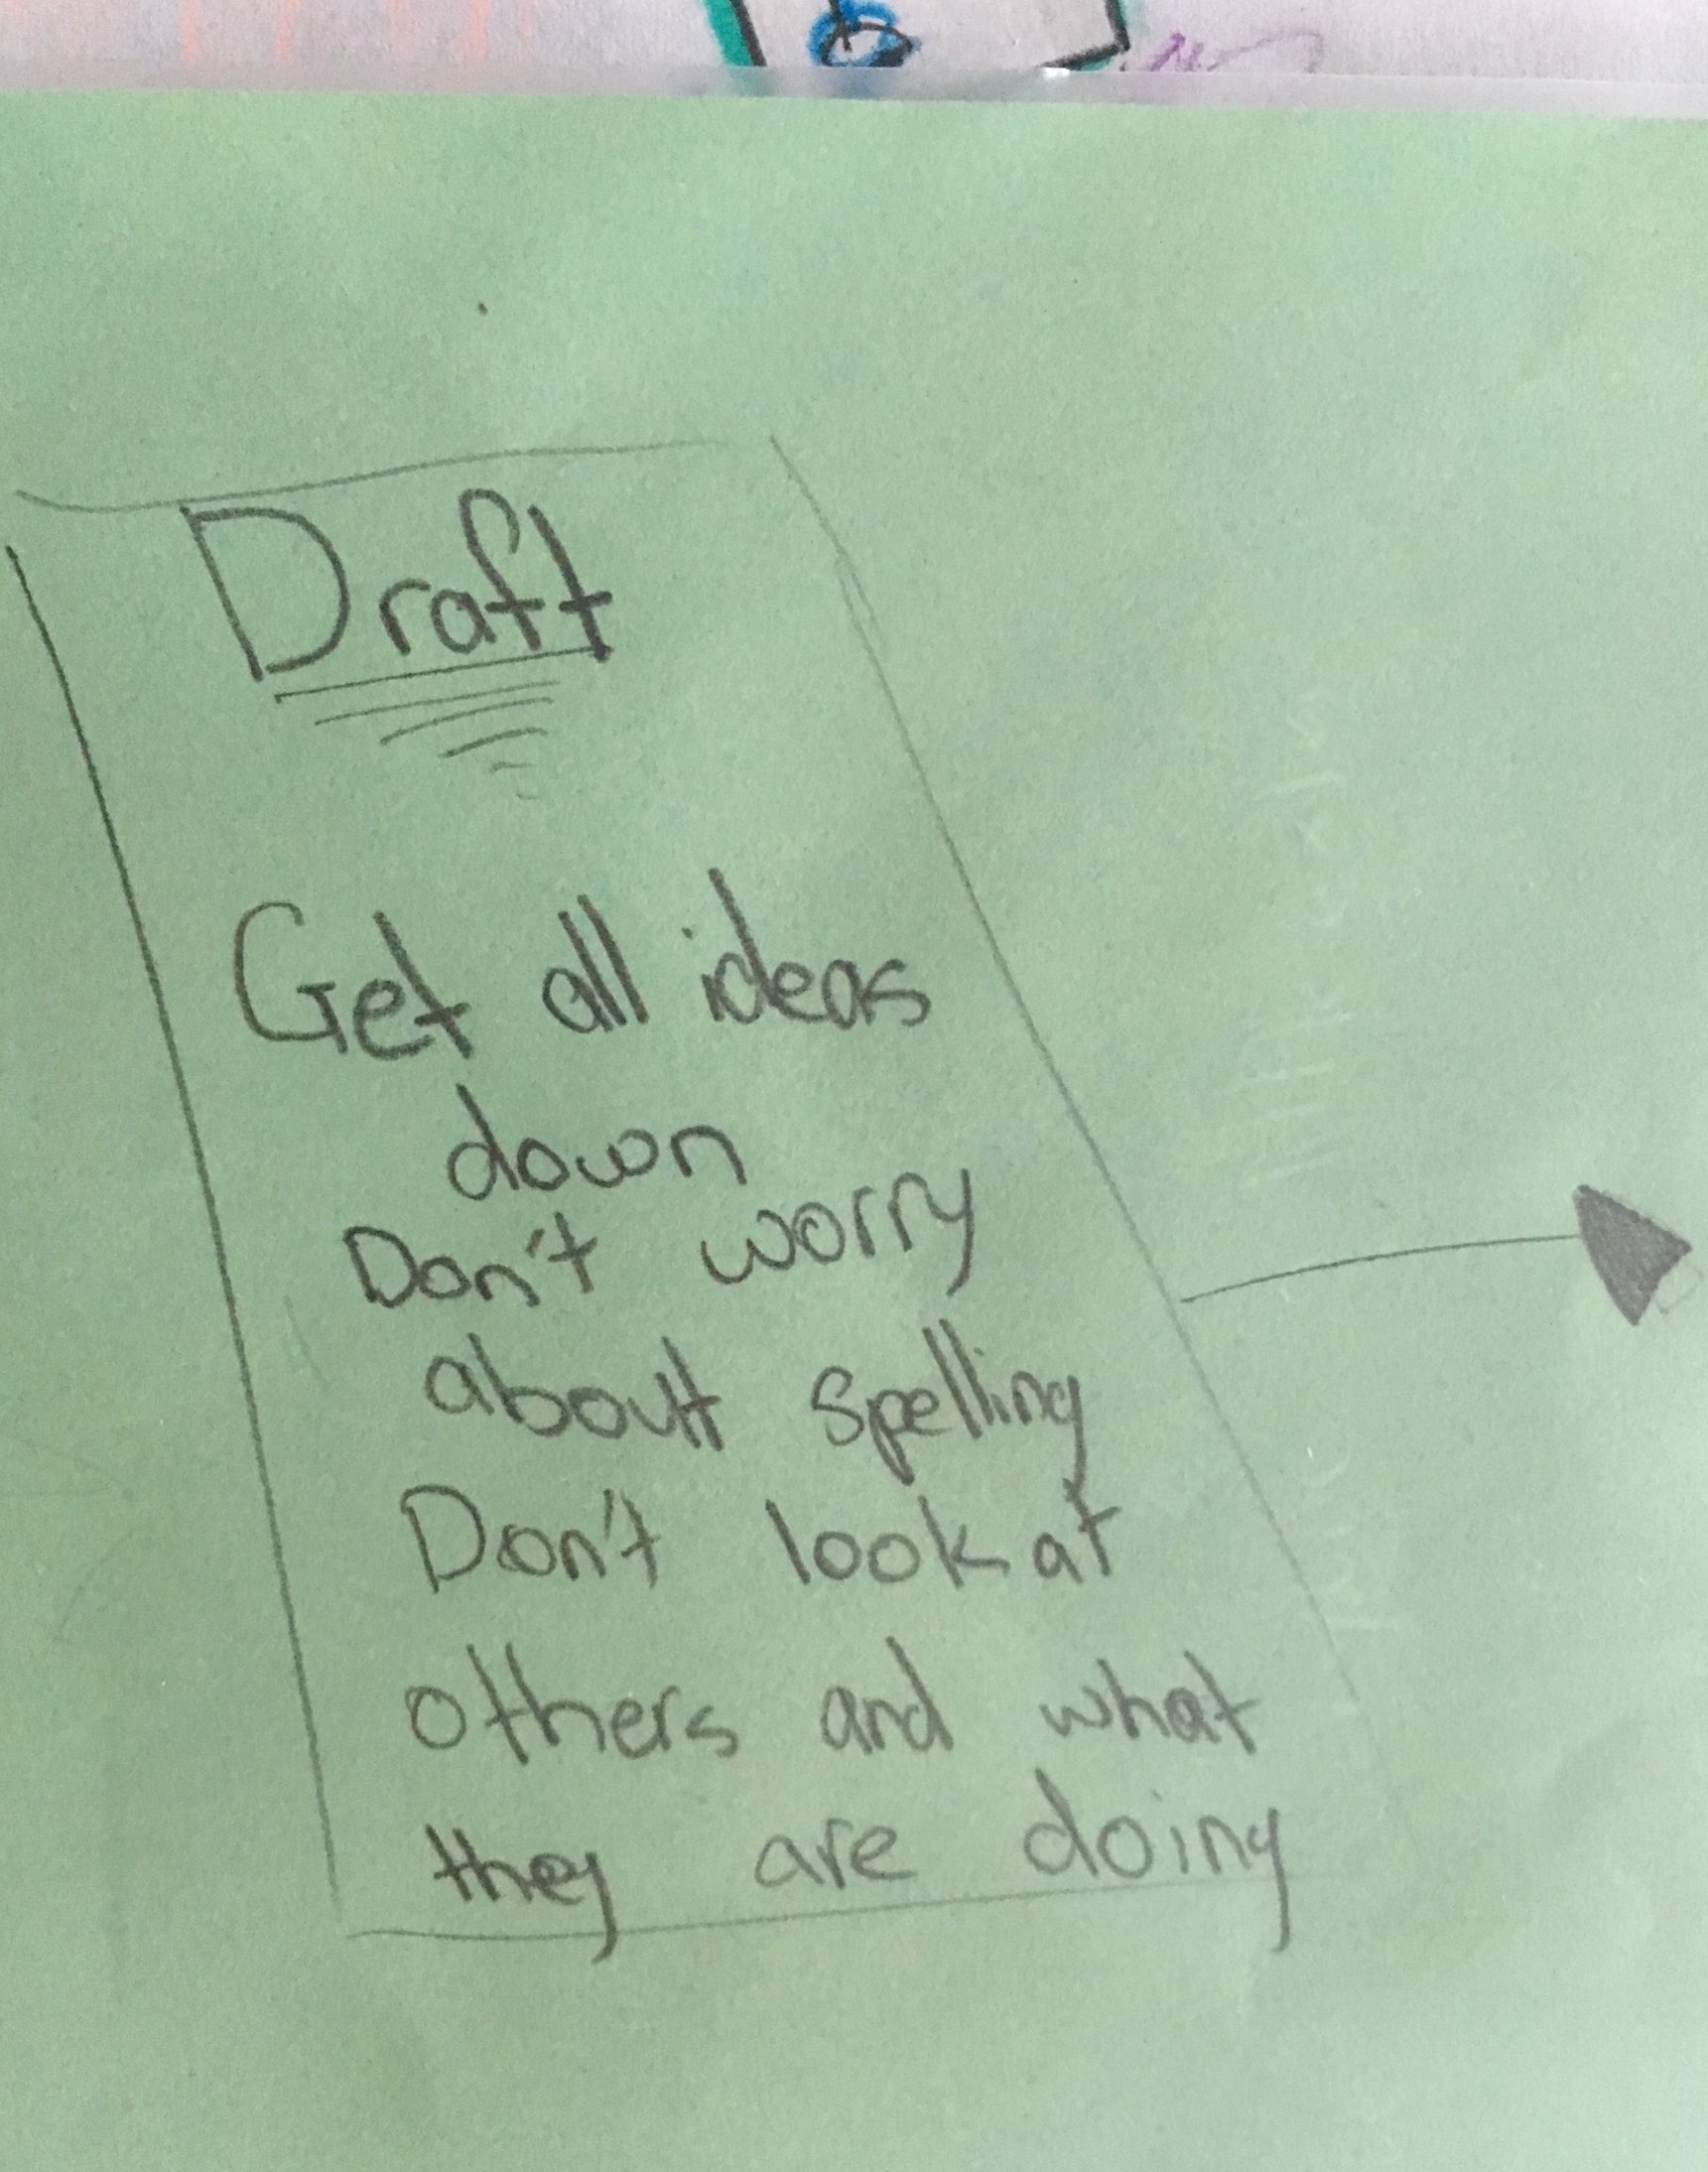 Draft
Get all ideas
down
Don't worry
about spelling
Don't look at
others and what
they are doing